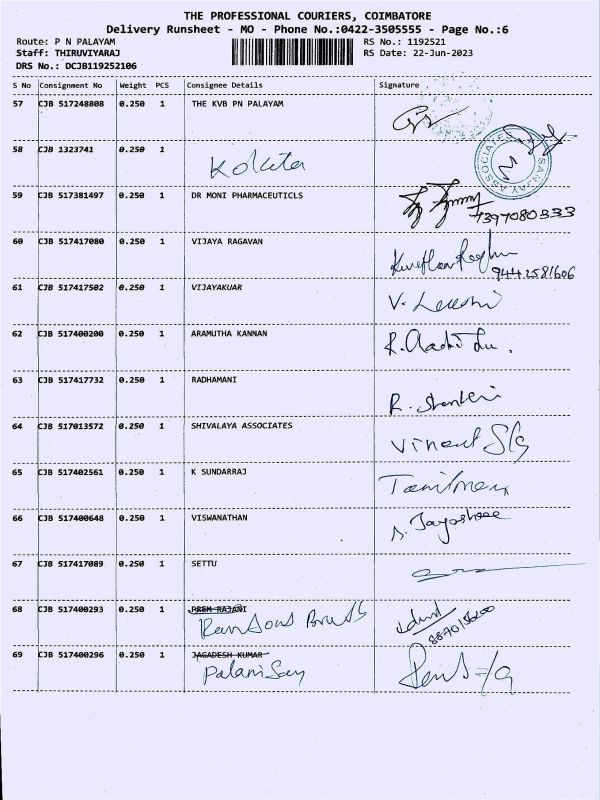 THE PROFESSIONAL COURIERS, COIMBATORE
Delivery Runsheet - MO - Phone No.:0422-3505555 - Page No.:6
Route: P N PALAYAM RS No.: 1192521
Staff: THIRUVIYARAJ RS Date: 22-Jun-2023
DRS No.: DCJB119252106
S No Consignment No Weight PCS Consignee Details Signature
57 CJB 517248808 0.250 1 THE KVB PN PALAYAM
58 CJB 1323741 0.250 1
SANJAY ASSOCIATES
59 CJB 517381497 0.250 1 DR MONI PHARMACEUTICLS
7397080333
60 CJB 517417080 0.250 1 VIJAYA RAGAVAN
9442581606
61 CJB 517417502 0.250 1 VIJAYAKUAR
62 CJB 517400200 0.250 1 ARAMUTHA KANNAN
63 CJB 517417732 0.250 1 RADHAMANI
64 CJB 517013572 0.250 1 SHIVALAYA ASSOCIATES
65 CJB 517402561 0.250 1 K SUNDARRAJ
66 CJB 517400648 0.250 1 VISWANATHAN
67 CJB 517417089 0.250 1 SETTU
68 CJB 517400293 0.250 1 PREM RAJANI
69 CJB 517400296 0.250 1 JAGADESH KUMAR